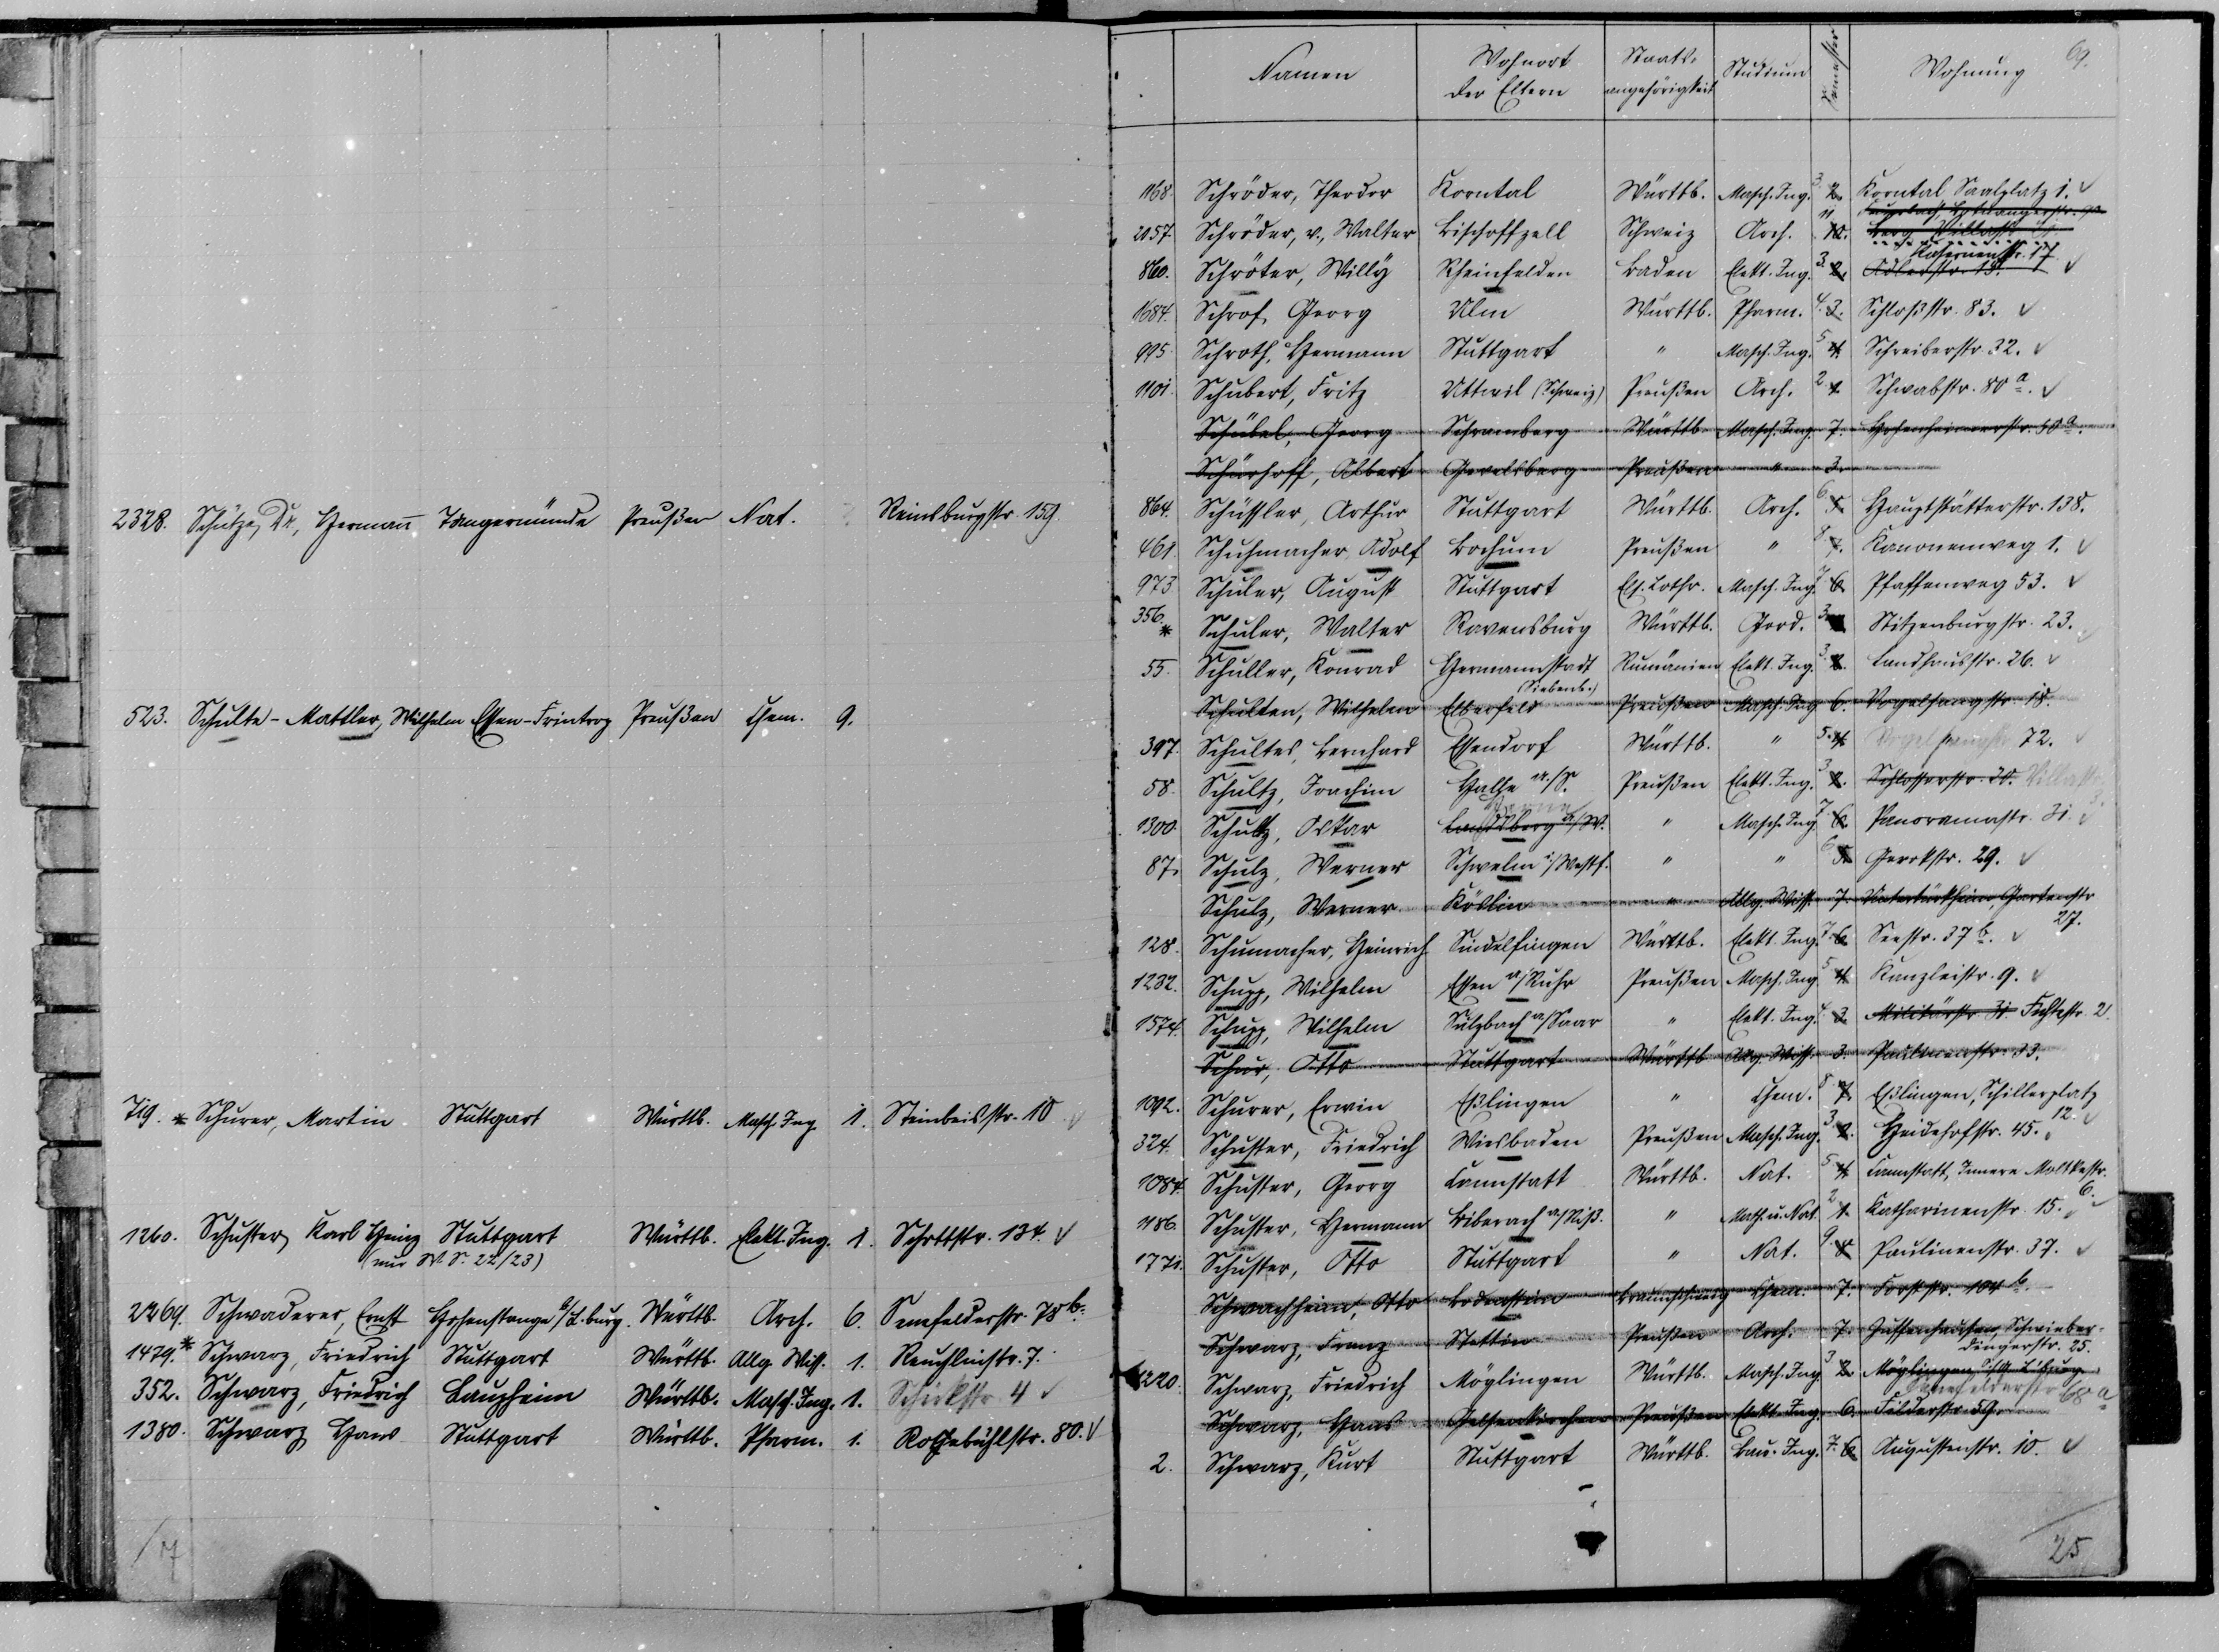 2328. Schütze, Dr., Hermann Tangermünde Preußen Nat. Reinsburgstr. 159.
523. Schulte-Mattler, Wilhelm Essen-Frintrop Preußen Chem. 9.
719. * Schurer, Martin Stuttgart Württb. Masch. Ing. 1. Steinbeisstr. 10 ✓
1260. Schuster, Karl Heinz Stuttgart Württb. Elekt. Ing. 1. Schottstr. 134. ✓
(nur W. S. 22/23)
2269. Schwaderer, Ernst Hohenstange b/L.burg. Württb. Arch. 6. Senefelderstr. 78b.
1479.* Schwarz, Friedrich Stuttgart Württb. Allg. Wiss. 1. Reuchlinstr. 7.
352. Schwarz, Friedrich Laupheim Württb. Masch. Ing. 1. Schickstr. 4 ✓
1380. Schwarz Hans Stuttgart Württb. Pharm. 1. Rotebühlstr. 80. ✓
17
69.
Namen Wohnort der Eltern Staatsangehörigkeit Studium Semester Wohnung
1168. Schröder, Theodor Korntal Württb. Masch. Ing. 3. 2. Korntal Saalplatz 1. ✓
2057. Schröder, v., Walter Bischoffzell Schweiz Arch. 11 10. Berg Villastr. 21
860. Schröter, Willy Rheinfelden Baden Elekt. Ing. 3. 2. Adlerstr. 13. Kasernenstr. 17 ✓
1684. Schrof, Georg Ulm Württb. Pharm. 4. 3. Schloßstr. 83. ✓
995. Schroth, Hermann Stuttgart " Masch. Ing. 5 4. Schreiberstr. 32. ✓
1101. Schubert, Fritz Uttwil (Schweiz) Preußen Arch. 2 1. Schwabstr. 80a. ✓
Schübel, Georg Schramberg Württb. Masch. Ing. 7. Hohenheimerstr. 50a.
Schürhoff, Albert Gevelsberg Preußen " 3.
864. Schüssler, Arthur Stuttgart Württb. Arch. 6. 5. Hauptstätterstr. 138.
461. Schuhmacher, Adolf Bochum Preußen " 8. 7. Kanonenweg 1. ✓
973. Schuler, August Stuttgart Els. Lothr. Masch. Ing. 7. 6. Pfaffenweg 53. ✓
356. * Schuler, Walter Ravensburg Württb. Geod. 3. Stitzenburgstr. 23. ✓
55. Schuller, Konrad Hermannstadt (Siebenb.) Rumänien Elekt. Ing. 3. 2. Landhausstr. 26. ✓
Schulten, Wilhelm Elberfeld Preußen Masch. Ing. 6. Vogelsangstr. 18.
397. Schultes, Bernhard Essendorf Württb. " 5. 4. Vogelsangstr. 72. ✓
58. Schultz, Joachim Halle a./S. Preußen Elekt. Ing. 3 2. Schlosserstr. 30. Villastr. 3.
1300. Schultz, Oskar Landsberg a/W. " Masch. Ing. 7 6. Panoramastr. 31. ✓
87. Schulz, Werner Schwelm i/Westf. " " 6. 5. Gerokstr. 29. ✓
Schulz, Werner Köslin " Allg. Wiss. 7. Untertürkheim, Gartenstr. 27.
128. Schumacher, Heinrich Sindelfingen Württb. Elekt. Ing. 7. 6. Seestr. 37b. ✓
1232. Schupp, Wilhelm Essen a/Ruhr Preußen Masch. Ing. 5 4. Kanzleistr. 9. ✓
1574. Schupp, Wilhelm Sulzbach a/Saar " Elekt. Ing. 4. 3. Militärstr. 31. Fichtestr. 2.
Schur, Otto Stuttgart Württb. Allg. Wiss. 3. Paulinenstr. 33.
1092. Schurer, Erwin Eßlingen " Chem. 8. 7. Eßlingen, Schillerplatz 12. ✓
324. Schuster, Friedrich Wiesbaden Preußen Masch. Ing. 3. 2. Heidehofstr. 45. ✓
1084. Schuster, Georg Cannstatt Württb. Nat. 5 4. Cannstatt, Innere Moltkestr. 6. ✓
1186. Schuster, Hermann Biberach a/Riß. " Math. u. Nat. 2 1. Katharinenstr. 15. ✓
1771. Schuster, Otto Stuttgart " Nat. 9. 8. Paulinenstr. 37. ✓
Schwachheim, Otto Bodenstein Braunschweig Chem. 7. Forststr. 104b.
Schwarz, Franz Stettin Preußen Arch. 7. Zuffenhausen, Schwieberdingerstr. 25.
1220. Schwarz, Friedrich Möglingen Württb. Masch. Ing. 3 2. Möglingen O/A. L'burg. Senefelderstr. 68a
Schwarz, Hans Gelsenkirchen Preußen Elekt. Ing. 6. Filderstr. 59.
2. Schwarz, Kurt Stuttgart Württb. Bau-Ing. 7. 6. Augustenstr. 10. ✓
25